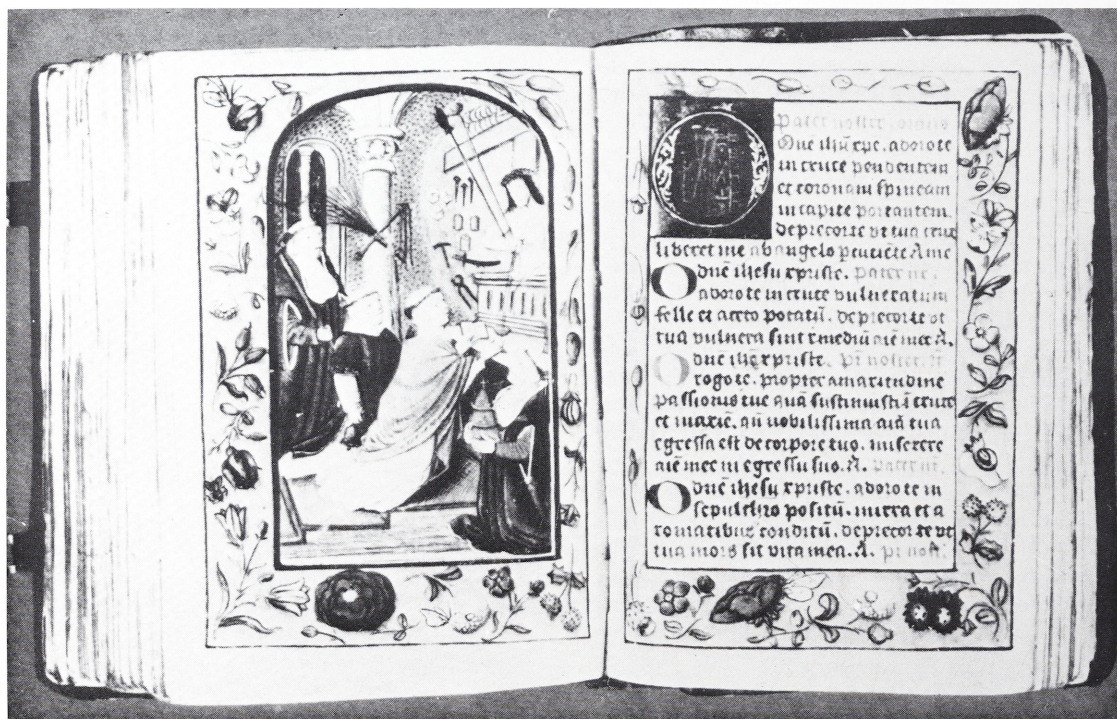 Pater noster
Dñe ihū xpe. adoro te
in cruce pendentem
et coronam spineam
in capite portantem.
deprecor te vt tua crux
liberet me ab angelo percuciēte Amē
Odñe ihesu xpriste. Pater nr̄.
adoro te in cruce vulneratum
felle et aceto potatū. deprecor te vt
tua vulnera sint remediū aīe mee A.
Odñe ihū xpriste. Pr̄ noster.
rogo te. propter amaritudinē
passionis tue quā sustinuisti ī cruce
et maxīe. qñ nobilissima aīa tua
egressa est de corpore tuo. miserere
aīe mee in egressu suo. A. Pater nr̄.
Odñe ihesu xpriste. adoro te in
sepulchro positū. mirra et a
romatibus conditū. deprecor te vt
tua mors sit vita mea. A. Pr̄ nost̄.